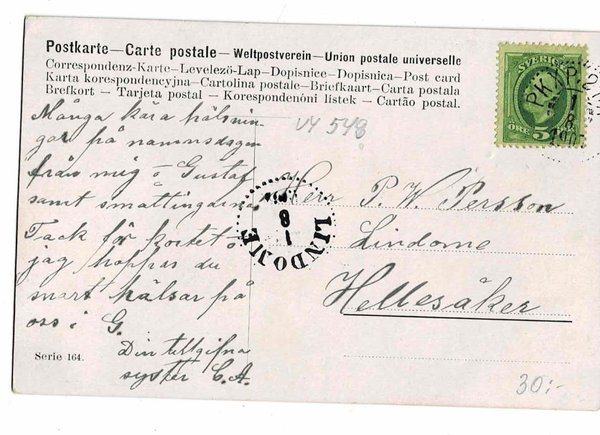 Postkarte—Carte postale—Weltpostverein—Union postale universelle
Correspondenz-Karte—Levelező-Lap—Dopisnice—Dopisnica—Post card
Karta korespondencyjna—Cartolina postale—Briefkaart—Carta postala
Brefkort — Tarjeta postal — Korespondenóni listek — Cartão postal.
SVERIGE
ÖRE 5
PKXP
1
8
VY 548
Många kära hälsnin-
gar på namnsdagen
från mig o Gustaf
samt småttingarna
Tack för kortet o
jag hoppas du
snart hälsar på
oss i G.
Din tillgifna
syster C.A.
LINDOME
1
8
Herr P. W. Persson
Lindome
Hellesåker
Serie 164.
30:-